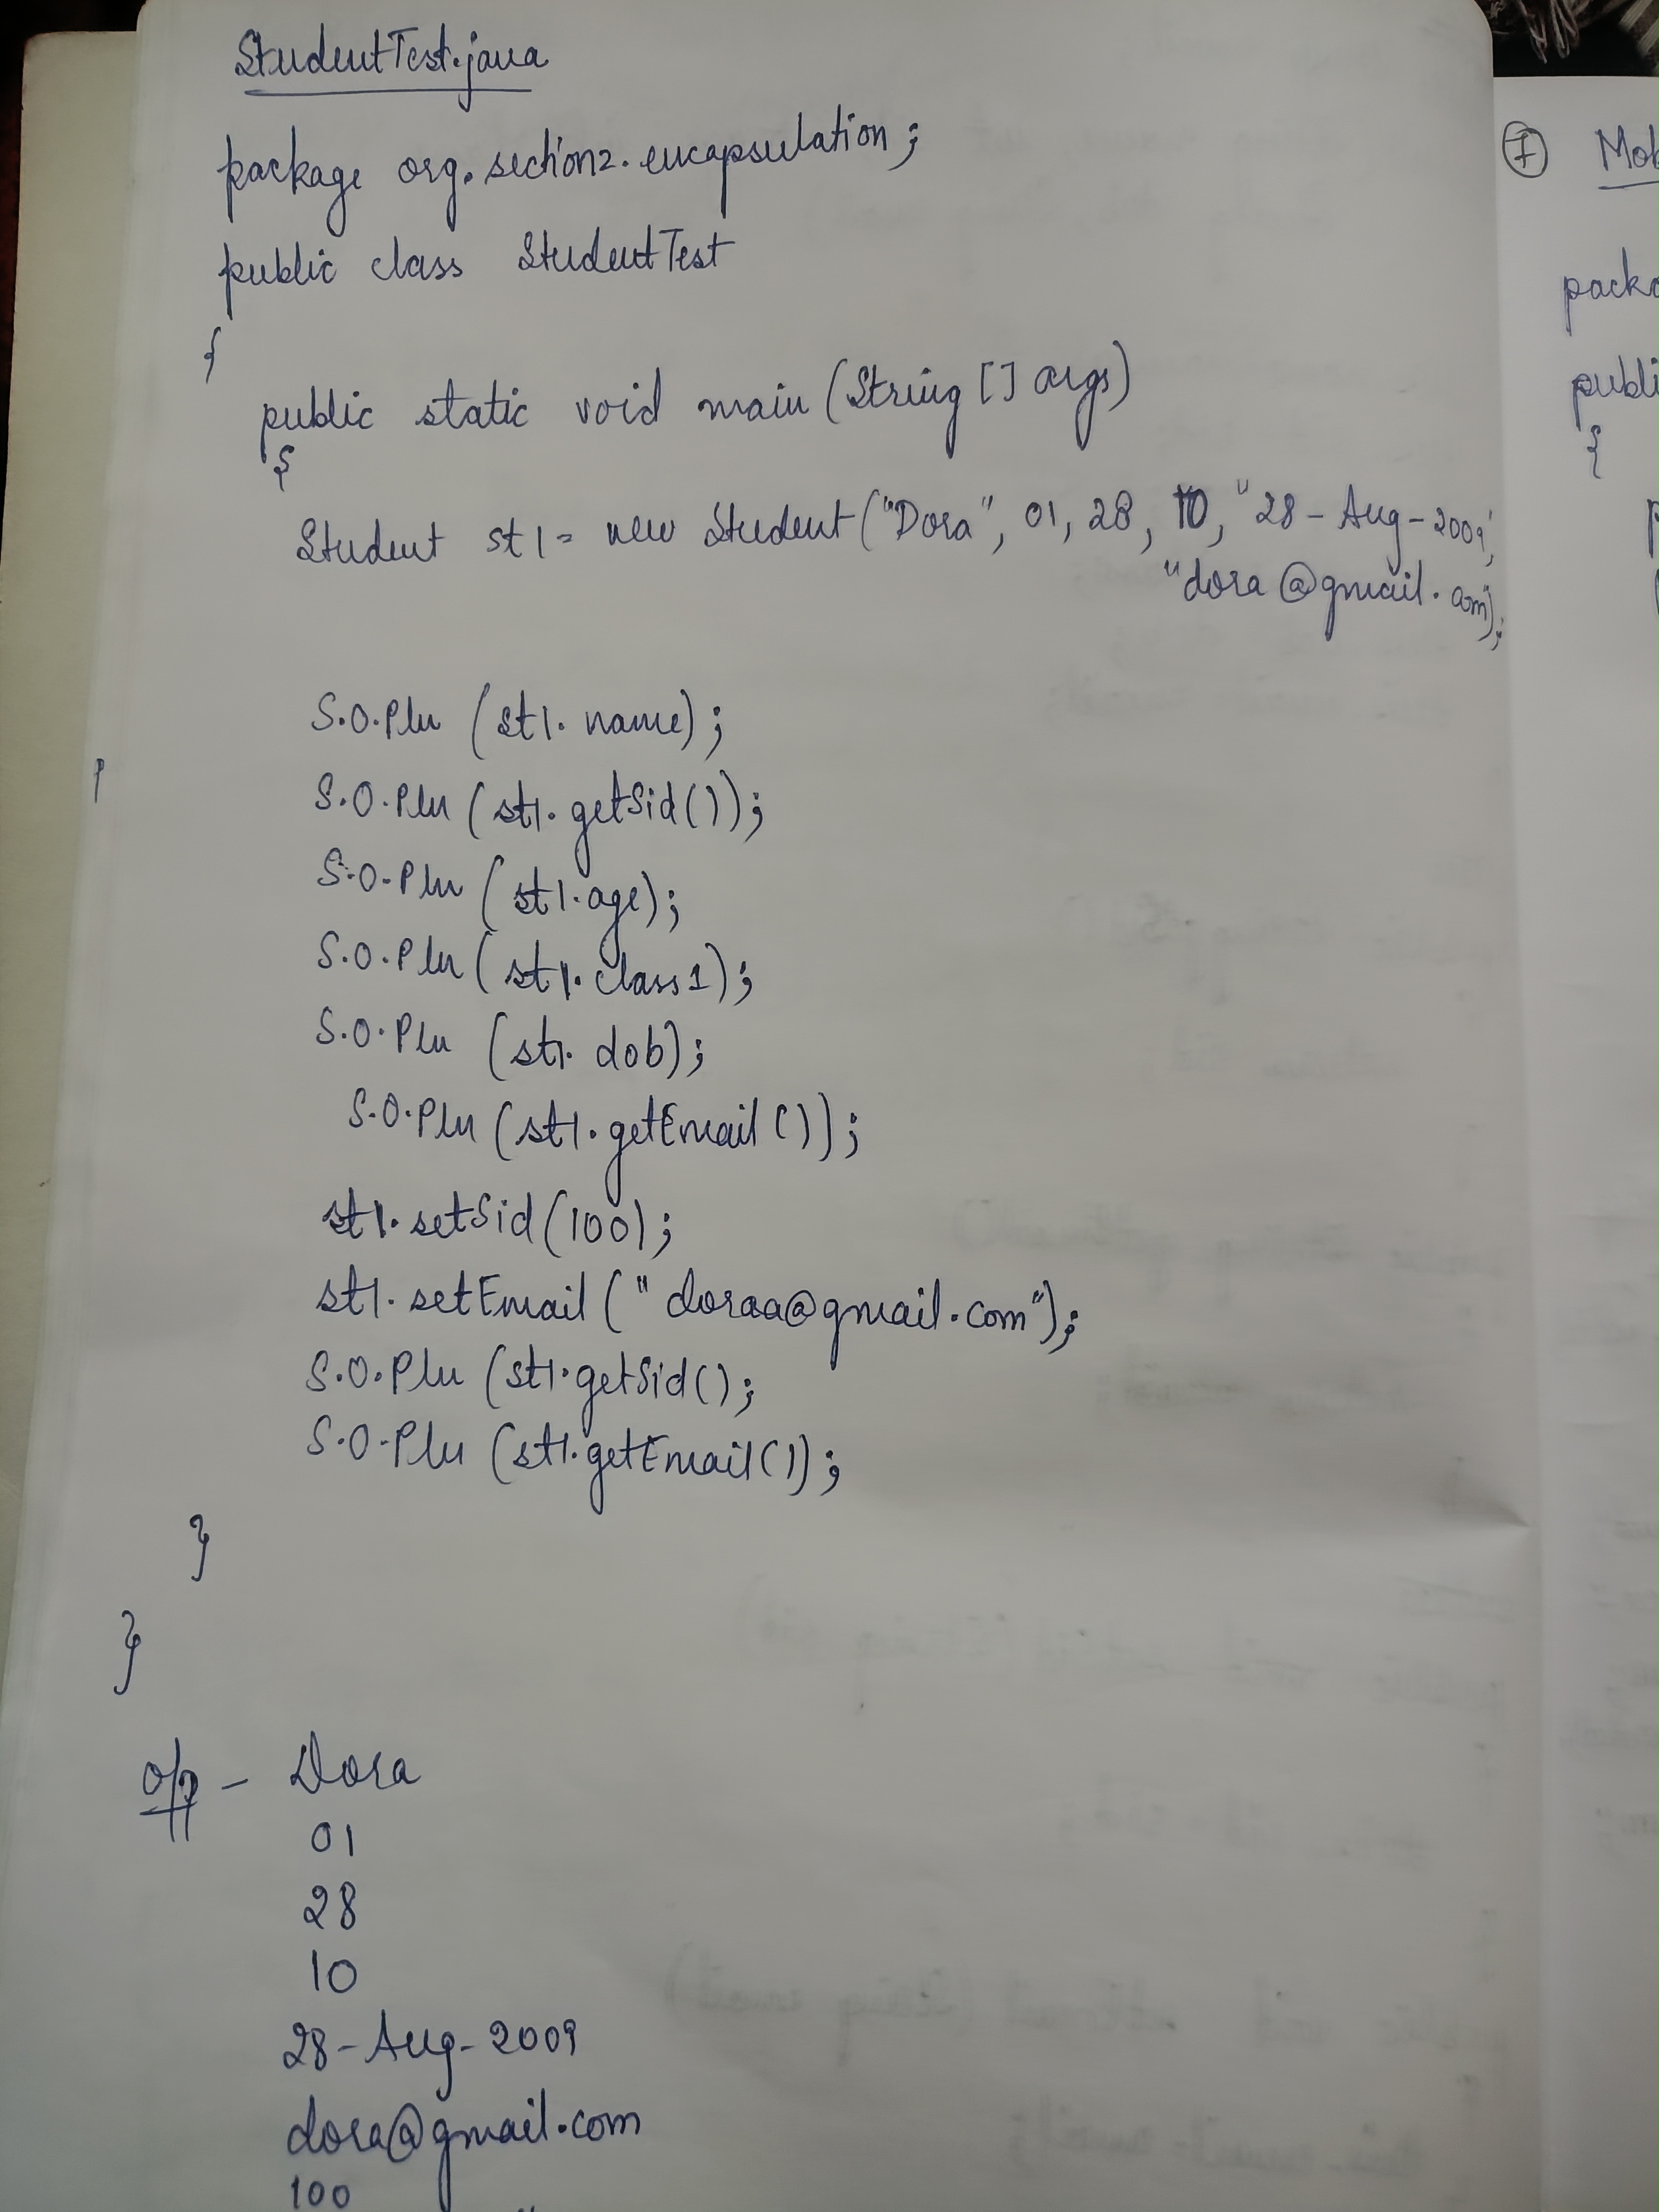 StudentTest.java
package org.section2.encapsulation;
public class StudentTest
{
public static void main (String [] args)
{
Student st1 = new Student ("Dora", 01, 28, 10, "28-Aug-2009",
"dora@gmail.com");
S.O.Pln (st1.name);
S.O.Pln (st1.getSid());
S.O.Pln (st1.age);
S.O.Pln (st1.class1);
S.O.Pln (st1.dob);
S.O.Pln (st1.getEmail());
st1.setSid(100);
st1.setEmail("doraa@gmail.com");
S.O.Pln (st1.getSid();
S.O.Pln (st1.getEmail());
}
}
o/p - Dora
01
28
10
28-Aug-2009
dora@gmail.com
100
I
{